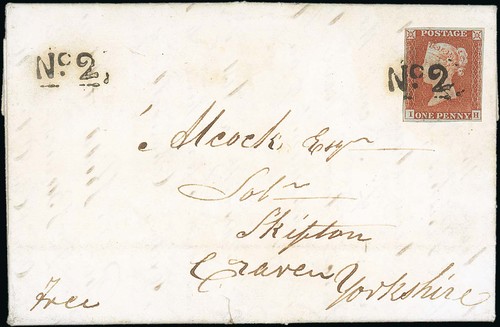 No. 2.
POSTAGE
No. 2.
ONE PENNY
I H
Alcock Esqr
Solr
Skipton
Craven Yorkshire
Free